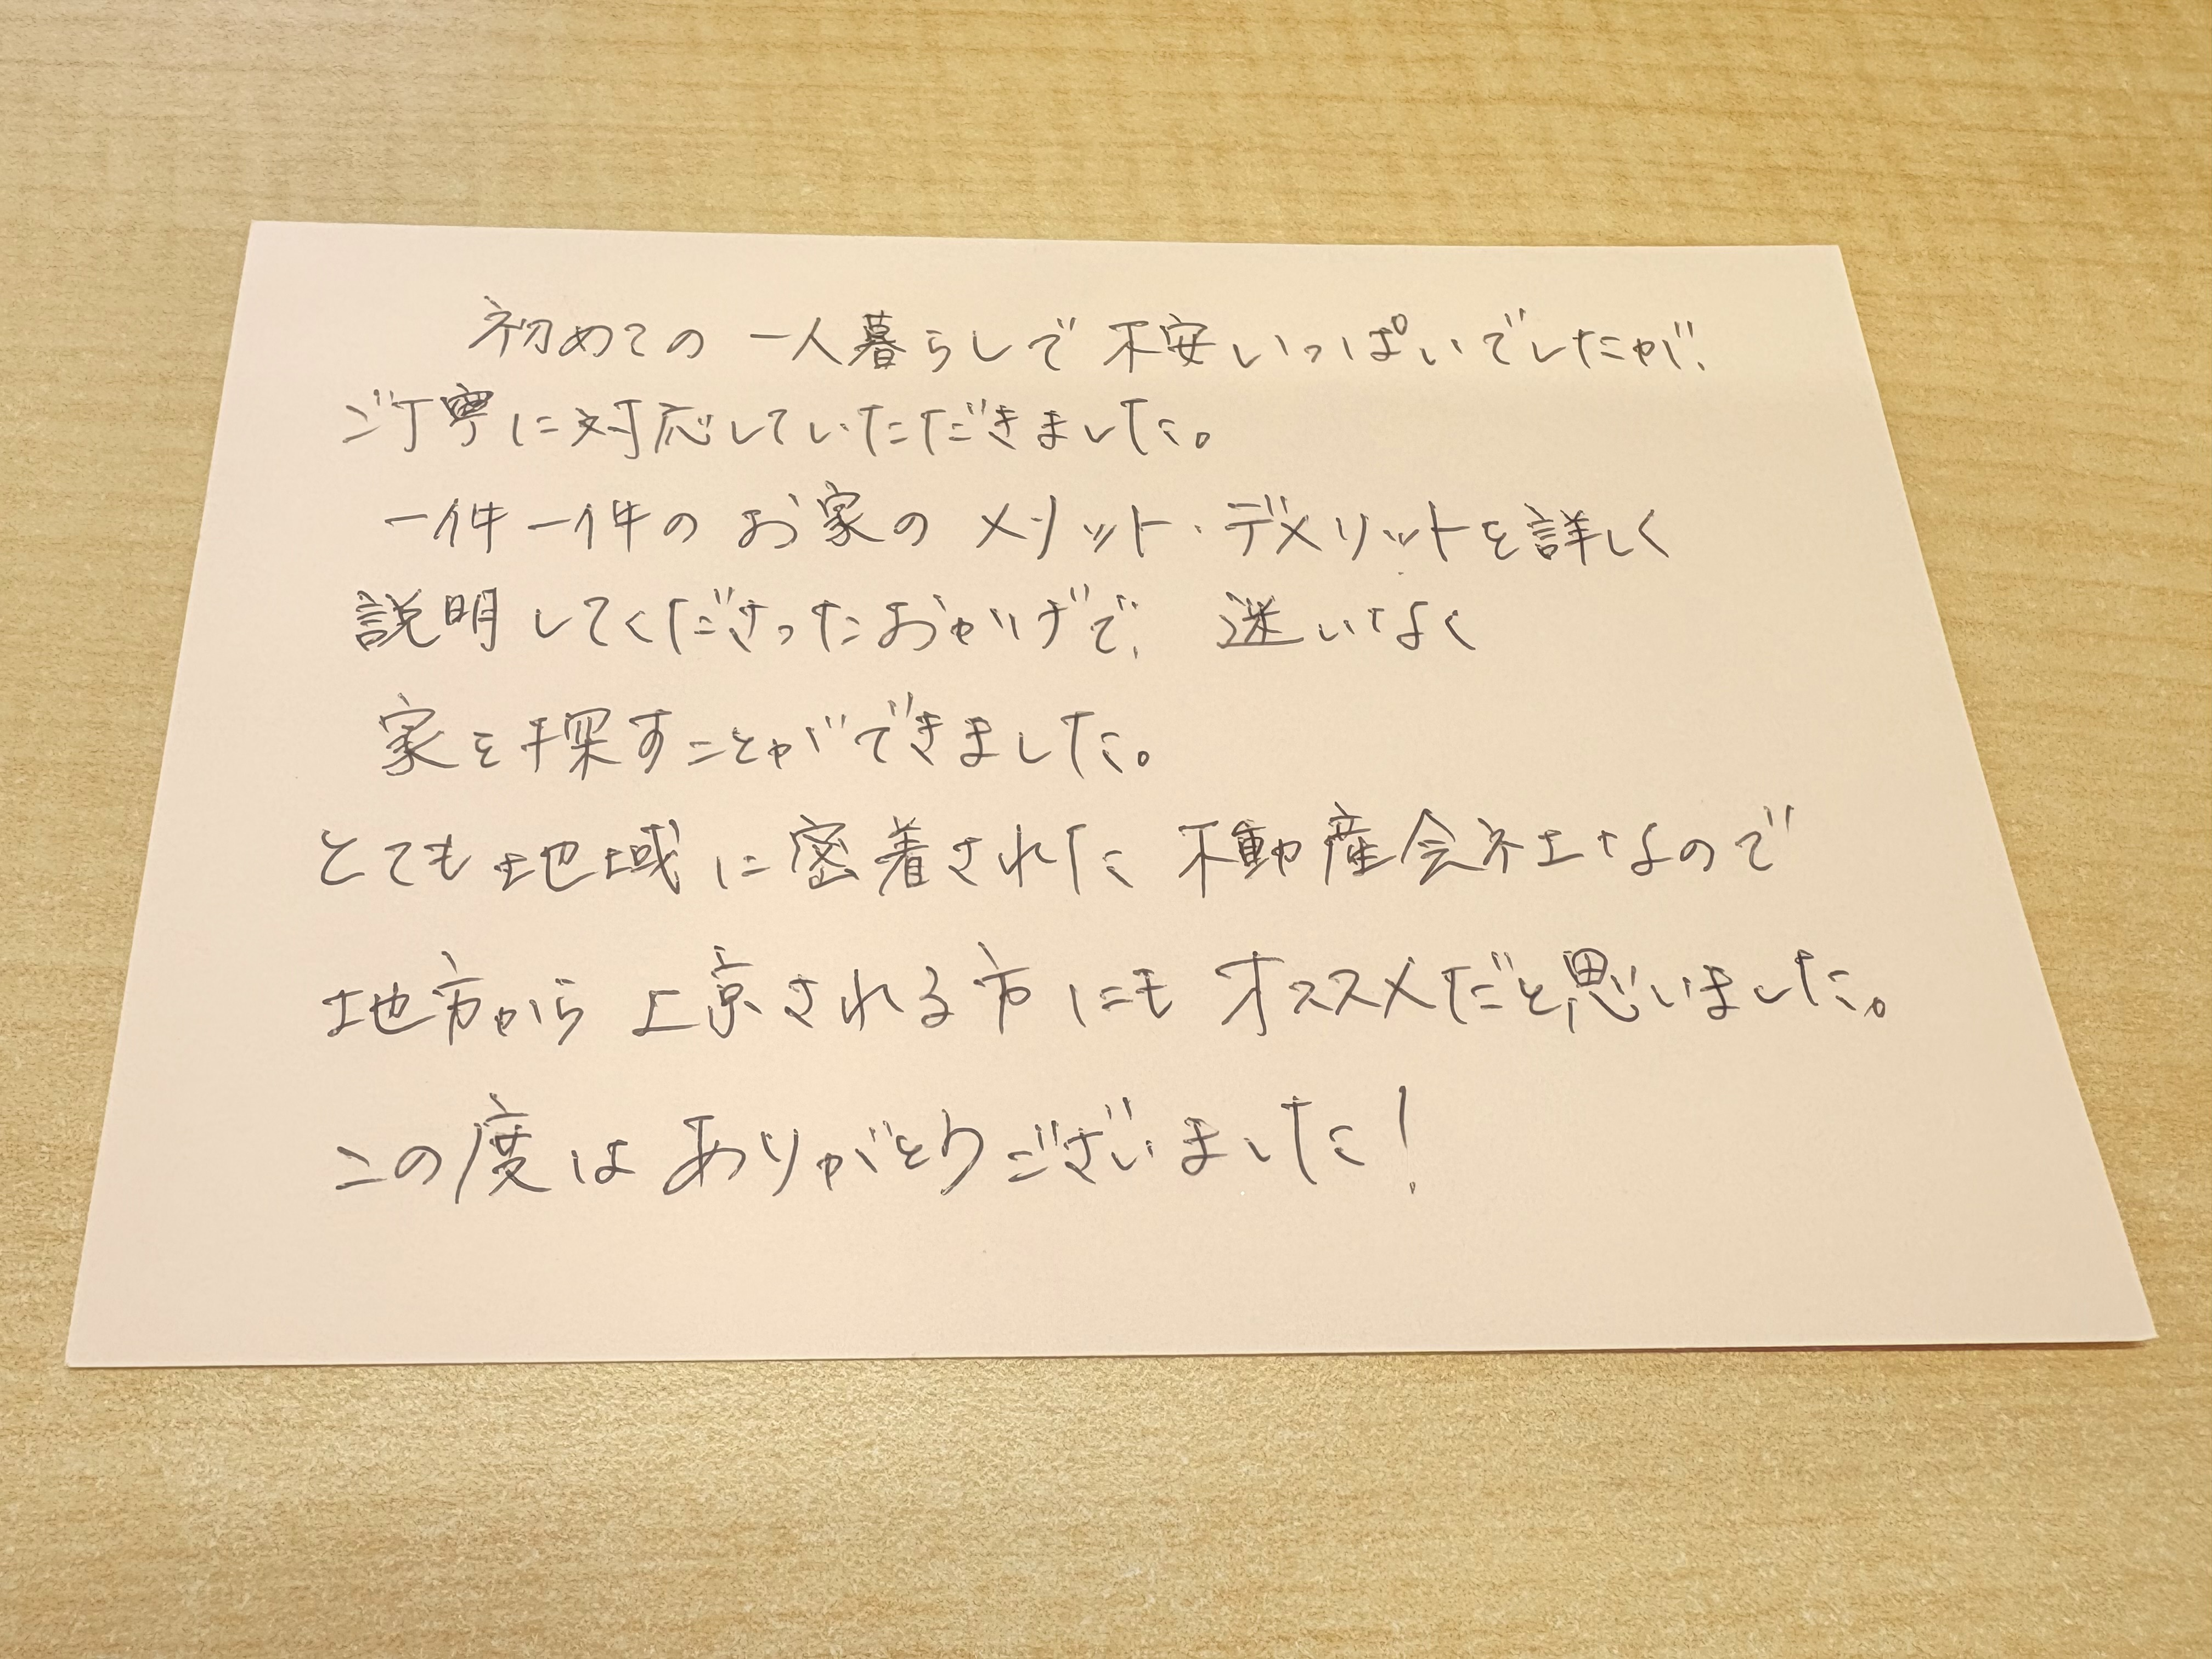 初めての一人暮らしで不安いっぱいでしたが、
ご丁寧に対応していただきました。
一件一件のお家のメリット・デメリットを詳しく
説明してくださったおかげで、迷いなく
家を探すことができました。
とても地域に密着された不動産会社なので
地方から上京される方にもオススメだと思いました。
この度はありがとうございました!